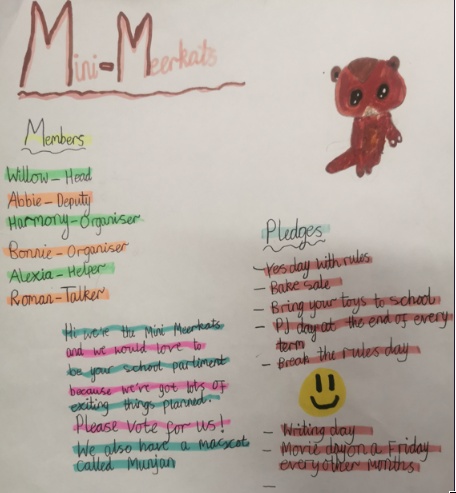 Mini-Meerkats
Members
Willow - Head
Abbie - Deputy
Harmony - Organiser
Bonnie - Organiser
Alexia - Helper
Roman - Talker
Hi we're the Mini Meerkats
and we would love to
be your school parliment
because we've got lots of
exiting things planned.
Please Vote for us!
We also have a mascot
called Munjan
Pledges
- Yes day with rules
- Bake sale
- Bring your toys to school
- PJ day at the end of every
term
- Break the rules day
- Writing day
- Movie day on a Friday
every other months
-